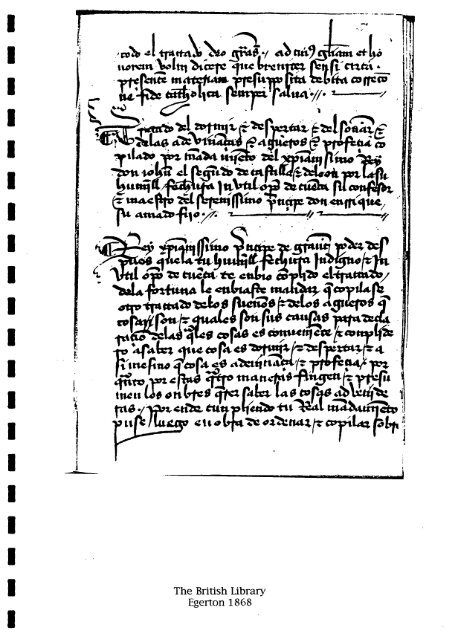 todo el tractado deo gr̃as. ad cuius gl̃iam et ho
norem volui dicere que breuiter sensi circa
presente materiam presupposita debita correcio
ne fide catholica semper salua //.
Tratado del dormir & despertar & del soñar &
delas adeuinanças & agueros & profecia co
pilado por mãdamiẽto del xp̃ianissimo Rey
don iohñ el segũdo de castilla & de leon por lasu
humill fechura inutil obp̃o de cuẽca su confesor
& maestro del serenissimo p̃ncipe don enrrique
su amado fijo
Rey xp̃ianissimo p̃ncipe de grãt poder des
pues quela tu humill fechura indigno & in
util obp̃o de cuẽca te enbio cõplido el tractado
dela fortuna le enbiaste mandar q̃ copilase
otro tractado delos sueños & delos agueros q̃
cosas son & quales son sus causas para decla
racion delas q̃les cosas es conueniẽte & complide
ro asaber que cosa es dormir & despertar & a
si mesmo q̃ cosa es adeuinãça & profecia & por
q̃nto por estas q̃tro maneras fingen & presu
men los onbres q̃rer saber las cosas aduenide
ras. Por ende cunpliendo tu Real mãdamiẽto
puse luego en obra de ordenar & copilar sobr
The British Library
Egerton 1868